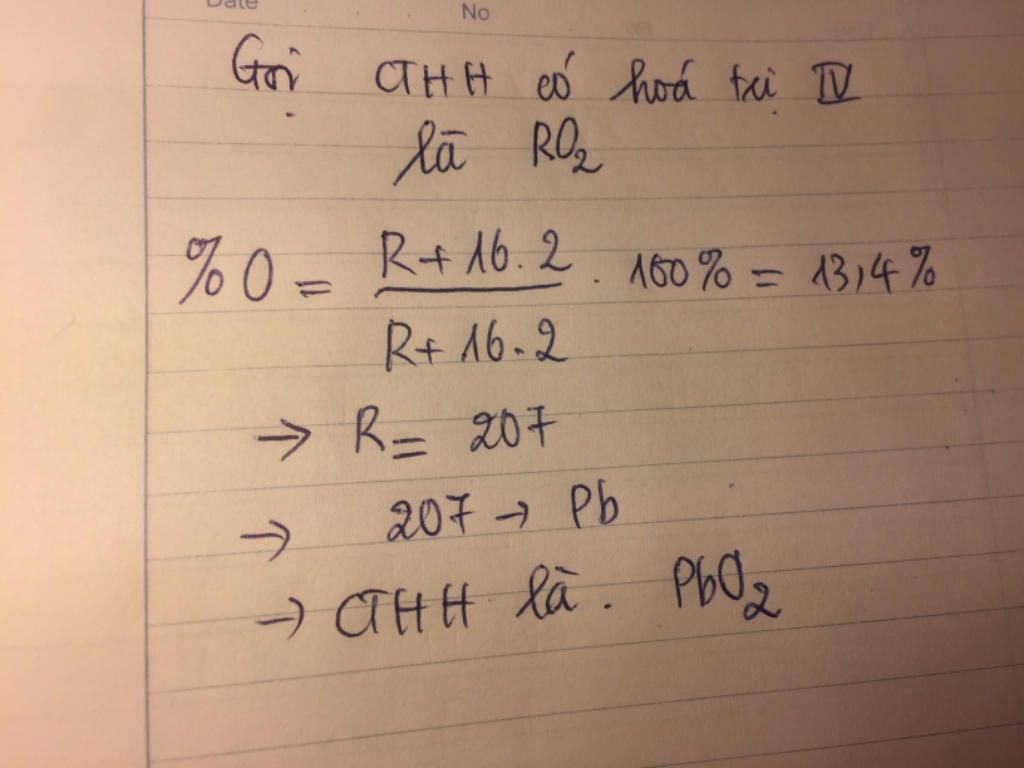 Date No
Gọi CTHH có hoá trị IV
là RO2
%O = R+16.2 / R+16.2 . 100% = 13,4%
→ R = 207
→ 207 → Pb
→ CTHH là . PbO2